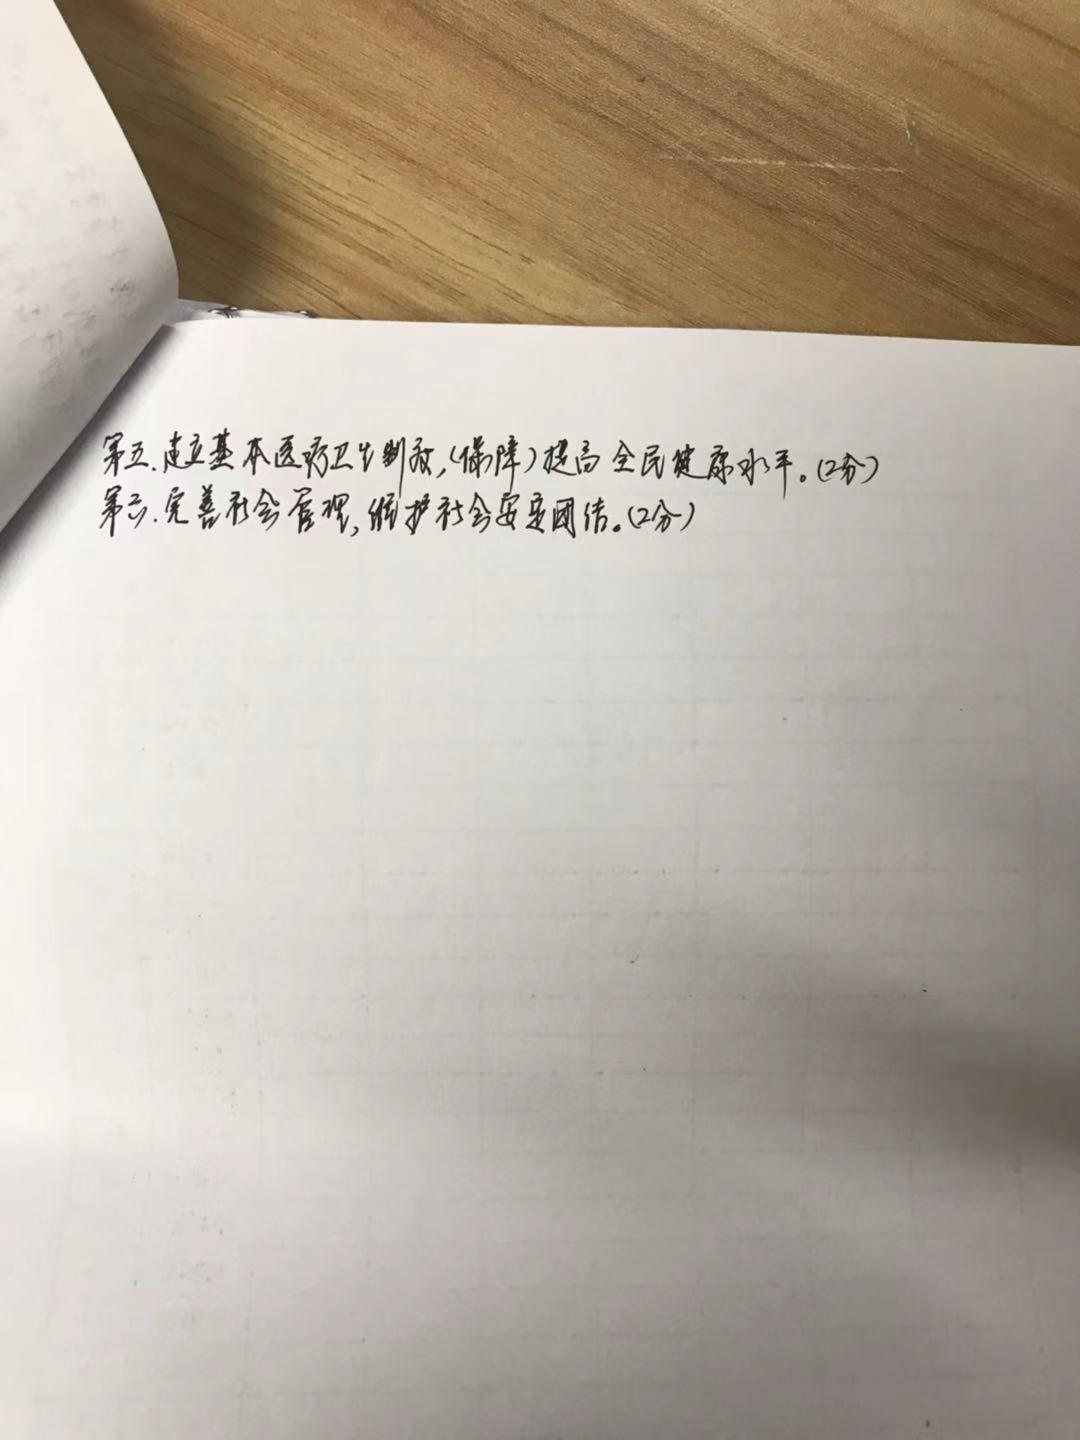 第五.建立基本医疗卫生制度,(保障)提高全民健康水平。(2分)
第六.完善社会管理,维护社会安定团结。(2分)